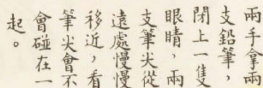 兩手拿兩
支鉛筆，
閉上一隻
眼睛，兩
支筆尖從
遠處慢慢
移近，看
筆尖會不
會碰在一
起。